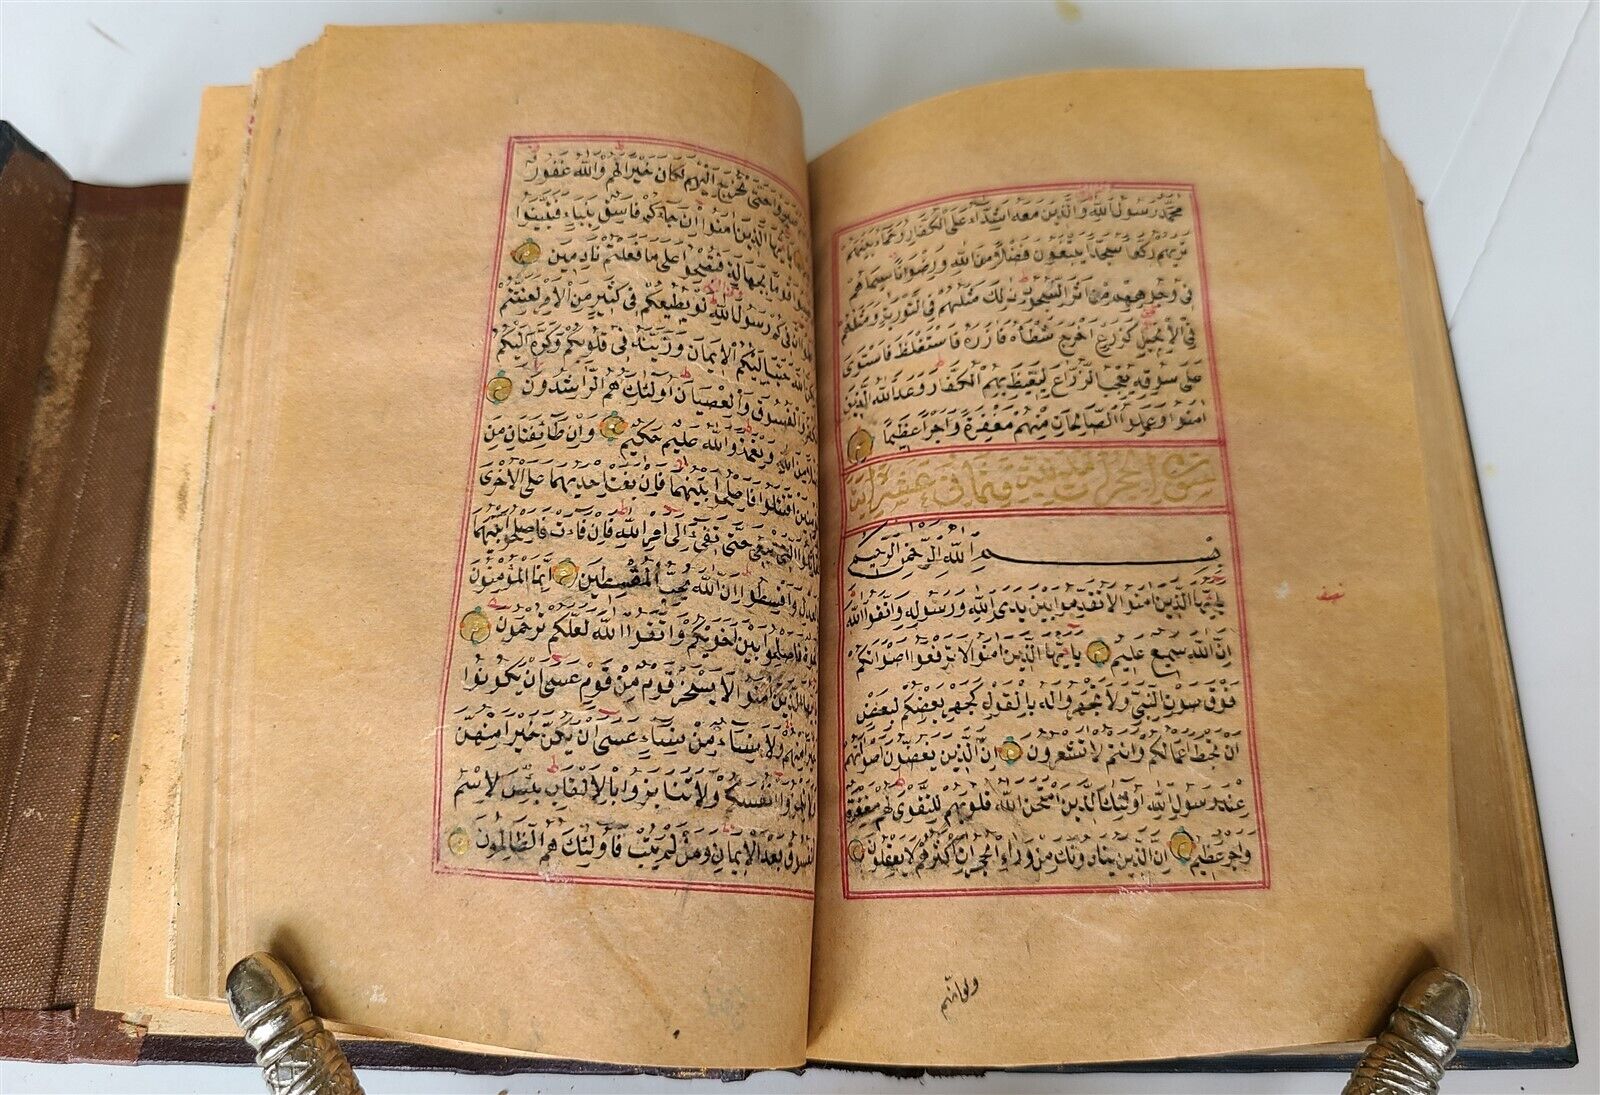 محمد رسول الله والذين معه اشداء على الكفار رحماء بينهم
تريهم ركعا سجدا يبتغون فضلا من الله ورضوانا سيماهم
فى وجوههم من اثر السجود ذلك مثلهم فى التورية ومثلهم
فى الانجيل كزرع اخرج شطأه فازره فاستغلظ فاستوى
على سوقه يعجب الزراع ليغيظ بهم الكفار وعد الله الذين
امنوا وعملوا الصالحات منهم مغفرة واجرا عظيما
سورة الحجرات مدنية وثمانى عشر اية
بسم الله الرحمن الرحيم
يا ايها الذين امنوا لا تقدموا بين يدى الله ورسوله واتقوا الله
ان الله سميع عليم يا ايها الذين امنوا لا ترفعوا اصواتكم
فوق صوت النبى ولا تجهروا له بالقول كجهر بعضكم لبعض
ان تحبط اعمالكم وانتم لا تشعرون ان الذين يغضون اصواتهم
عند رسول الله اولئك الذين امتحن الله قلوبهم للتقوى لهم مغفرة
واجر عظيم ان الذين ينادونك من وراء الحجرات اكثرهم لا يعقلون
ولوانهم
حتى تخرج اليهم لكان خيرا لهم والله غفور
يا ايها الذين امنوا ان جاءكم فاسق بنباء فتبينوا
قوما بجهالة فتصبحوا على ما فعلتم نادمين
ان فيكم رسول الله لو يطيعكم فى كثير من الامر لعنتم
الله حبب اليكم الايمان وزينه فى قلوبكم وكره اليكم
والفسوق والعصيان اولئك هم الراشدون
من الله ونعمة والله عليم حكيم وان طائفتان من
اقتتلوا فاصلحوا بينهما فان بغت احديهما على الاخرى
التى تبغى حتى تفىء الى امر الله فان فاءت فاصلحوا بينهما
واقسطوا ان الله يحب المقسطين انما المؤمنون
فاصلحوا بين اخويكم واتقوا الله لعلكم ترحمون
الذين امنوا لا يسخر قوم من قوم عسى ان يكونوا
منهم ولا نساء من نساء عسى ان يكن خيرا منهن
انفسكم ولا تنابزوا بالالقاب بئس الاسم
الفسوق بعد الايمان ومن لم يتب فاولئك هم الظالمون